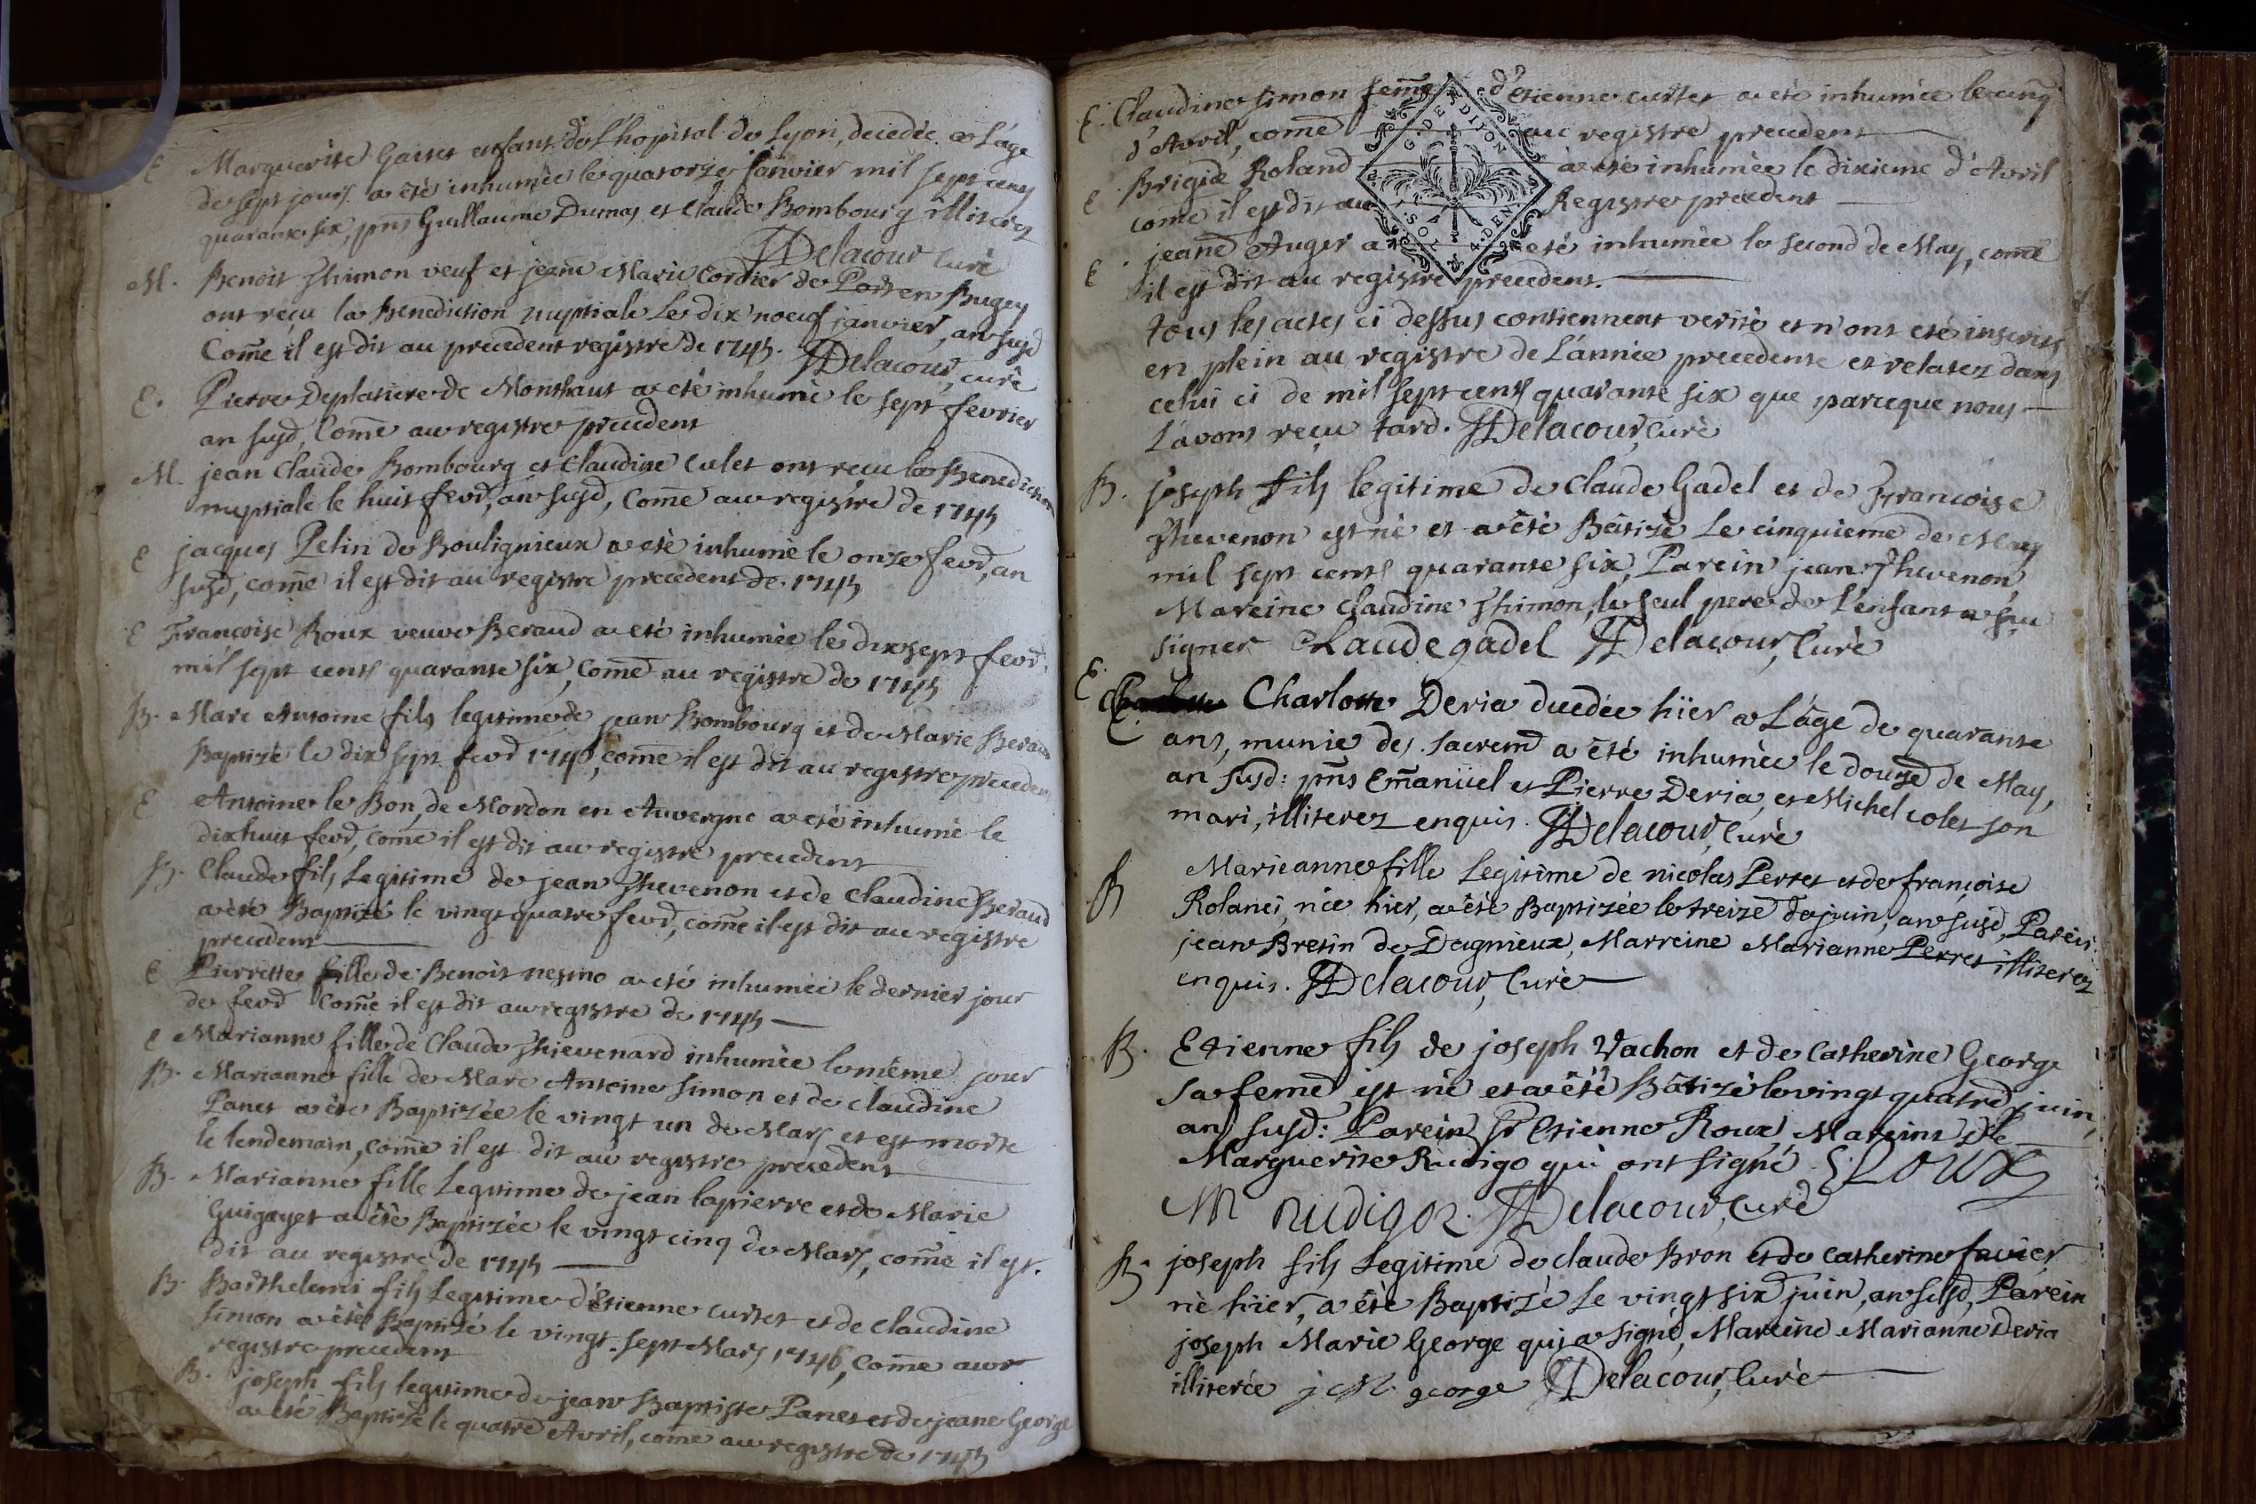 E Marguerite Gairet enfant de L'hopital de Lyon, decedée a L'âge
de sept jours a été inhumée le quatorze janvier mil sept cens
quarante six, pns Guillaume Dumas et Claude Bombourg illiterez
Delacour Curé
M. Benoit Thimon veuf et jeañe Marie Cordier de Post en Bugey
ont reçu la Benediction nuptiale le dix noeuf janvier, an susd
Come il est dit au precedent registre de 1745. Delacour, curé
E. Pierre Deplatiere de Monthaut a eté inhumé le sept fevrier
an susd, Come au registre precedent
M. jean Claude Bombourg et Claudine Culet ont reçu la Benediction
nuptiale le huit fevr, an susd, Come au registre de 1745
E jacques Pelin de Bouligneux a eté inhumé le onze fevr, an
susd, come il est dit au registre precedent de 1745
E Françoise Roux veuve Beraud a eté inhumée le dix sept fevr.
mil sept cents quarante six, Come au registre de 1745
B. Marc Antoine fils legitime de jean Bombourg et de Marie Beraud
Baptizé le dix sept fevr 1746, come il est dit au registre precedent
E Antoine le Bon, de Mordon en Auvergne a eté inhumé le
dixhuit fevr, come il est dit au registre precedent
B. Claude fils Legitime de jean Thevenon et de Claudine Beraud
a été Baptizé le vingt quatre fevr, come il est dit au registre
precedent
E Pierrette fille de Benoit nesmo a eté inhumée le dernier jour
de fevr Come il est dit au registre de 1745
E Marianne fille de Claude Thievenard inhumée le même jour
B. Marianne fille de Marc Antoine Simon et de Claudine
Panet a été Baptizée le vingt un de Mars et est morte
le lendemain, come il est dit au registre precedent
B. Marianne fille Legitime de jean lapierre et de Marie
Guigayet a été Baptizée le vingt cinq de Mars, come il est
dit au registre de 1745
B. Barthelemi fils Legitime d'Etienne Curtet et de Claudine
Simon a été Baptizé le vingt-sept Mars 1746, Come au
registre precedent
B. joseph fils legitime de jean Baptiste Panet et de jeane George
a eté Baptizé le quatre Avril, come au registre de 1745
E. Claudine Simon feme d'etienne curtet a eté inhumée le cinq
d'Avril, come au registre precedent
E Brigide Roland a eté inhumée le dixieme d'Avril
come il est dit au Registre precedent
E jeane Auger a eté inhumée le second de May, come
il est dit au registre precedent.
G. DE DIJON
2 S
SOLS
4. DEN.
tous les actes ci dessus contiennent verité et n'ont eté inscrits
en plein au registre de L'année precedente et relatez dans
celui ci de mil sept cents quarante six que parceque nous
L'avons reçu tard. Delacour, Curé
B. joseph fils legitime de Claude Gadel et de Françoise
Thevenon est né et a été Bâtizé Le cinquieme de May
mil sept cents quarante six, Parein jean Thevenon
Mareine Claudine Thimon, le seul pere de L'enfant a su
signer Claude gadel Delacour, Curé
E. Charlotte Deria decedée hïer a L'âge de quarante
ans, munie des sacrem a été inhumée le douze de May,
an susd: pñs Emañuel et Pierre Deria, et Michel colet son
mari, illiterez enquis. Delacour, Curé
B Marieanne fille Legitime de nicolas Perret et de françoise
Rolanei, née hier, a été Baptizée le treize de juin, an susd, Parein
jean Bretin de Dagnieux, Marreine Marianne Perret illiterez
enquis. Delacour, Curé
B. Etienne fils de joseph Vachon et de Catherine George
sa feme est né et a été Bâtizé le vingt quatre juin,
an susd: Parein Sr Etienne Roux, Mareine dlle
Marguerite Rudigo qui ont signé. E Roux
M Rudigoz. Delacour, Curé
B. joseph fils Legitime de claude Bron et de catherine favier
né hïer, a été Baptizé le vingt six juin, an susd, Parein
joseph Marie George qui a signé, Mareine Marianne Deria
illiterée j M george Delacour, Curé